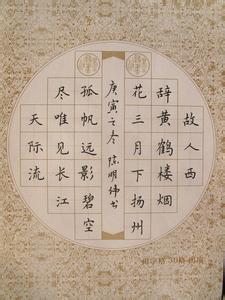 故人西
辞黄鹤楼烟
花三月下扬州
孤帆远影碧空
尽唯见长江
天际流
庚寅之冬陈明伟书